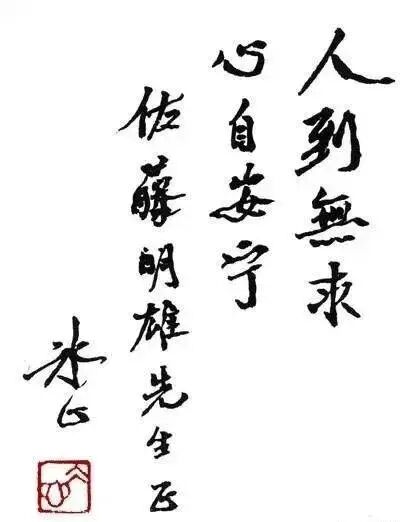 人到無求
心自安宁
佐藤明雄先生正
冰心